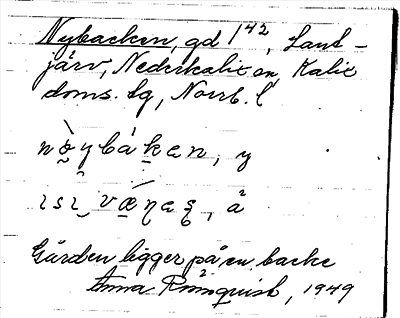 Nybacken, gd 1⁴², Sant-
järv, Nederkalix sn, Kalix
doms. tg, Norrb. l
nỳybáken, y
ɩsɩ, vǽŋaʂ, å
Gården ligger på en backe
Anna Rönnquist, 1949